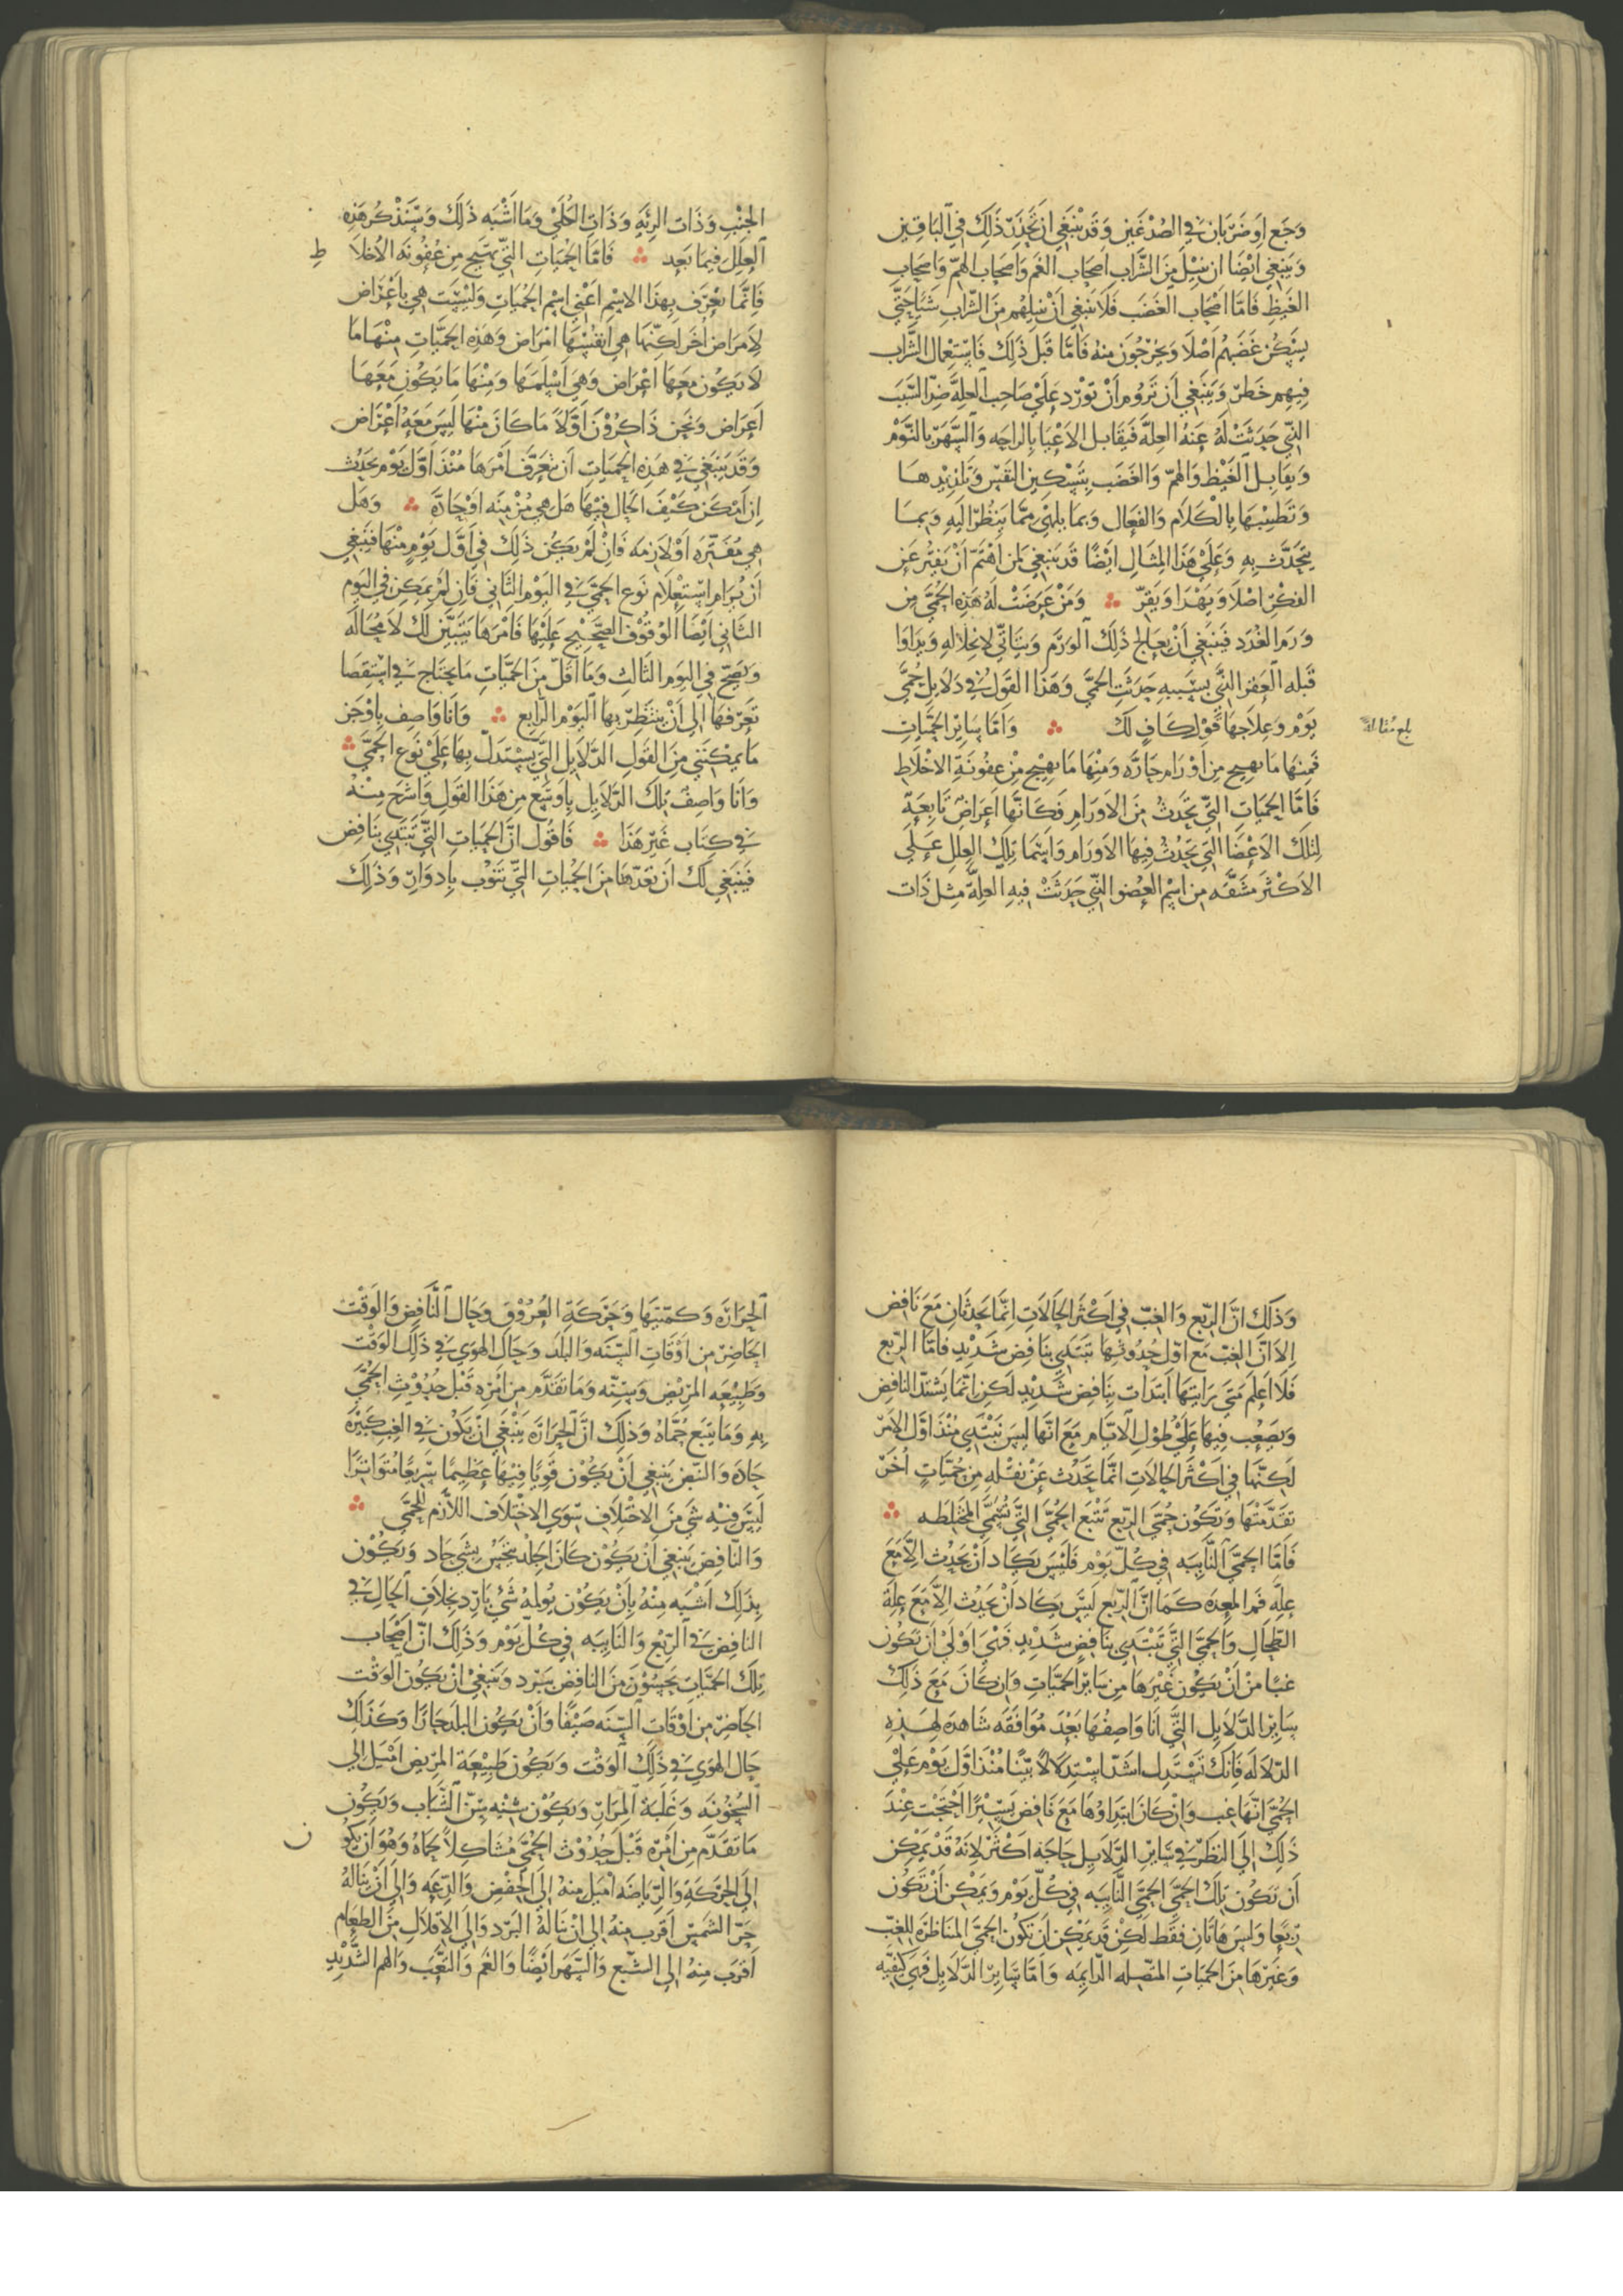 وَجَع اوَضَرَبَان في الصُدْغَين وَقَد يَنْبَغِي ان تَحْذَر ذَلِكَ في البَاقِين
وَيَنبَغِي ايْضًا ان ينيل مِنَ الشَّرَاب اصحَاب الغَم وَاصحَاب الهَمّ وَاصحَاب
الغَيظِ فَامَّا اصْحَاب الغَضَب فَلَا يَنبَغي انْ ينيلهُم مِنَ الشَّرابِ شَيًا حَتَّي
يسْكُن غَضَبهُم اصْلًا وَيَخرجُونَ مِنه فَامَّا قَبلَ ذَلِكَ فَاسْتِعمَال الشَّرَاب
فِيهِم خَطَر وَيَنبَغي ان تَرُوم انْ تورد عَلَيْ صَاحِب العِلَّة ضِدّ السَّبَب
الَّتِي حَدَثَتْ لَهُ عَنهُ العِلةَ فَيقَابل الاعْيَا بِالراحَه وَالسَّهَر بالنَّوْم
وَيقَابِل الغَيْظ وَالهَمّ وَالغَضَب بِتَسْكِين النَفس وَتَلذِيْذهَا
وَتَطْيِيْبهَا بِالْكَلَام وَالفعَال وَبمَا يلهي مِمَّا ينظر اليَهِ وَبِمَا
يتحَدّث بِهِ وَعَلَي هَذَا المِثَالِ ايْضًا قَد يَنبَغي لمن اهْتَمّ انْ يَفتر عَن
الفِكر اصْلًا وَيَهْدَا وَيَقِرّ ∴ وَمَنْ عَرَضَتْ لَهُ هَذِهِ الحُمَّيَ مِن
وَرَم الغدَد فَينبَغي انْ يعَالج ذَلِكَ الوَرَم وَيتَاتَّي لانحِلَالهِ وَيدَاوَا
قَبله العفن الَّتَي بسَبَبهِ حَدَثَتِ الحمَّي وَهَذَا القَول في دَلَايِل حُمَّيَ
يَوْم وَعِلَاجهَا قَوْل كَافٍ لَك ∴ وَامَّا سَايِر الحمَّيَاتِ
بلغ مقابلة
فَمِنهَا مَا يهيج مِن اوْرَام حَارَّه وَمنْهَا مَا يهيْج مِنْ عفُونَةِ الاخْلَاط
فَامَّا الحمَيَاتِ الَّتِي تَحدُثُ مِنَ الاورَام فَكَانَّهَا اعَراضٌ تَابِعَةٌ
لِتلكَ الاعْضَا الَّتَي يَحْدُثُ فيهَا الاورَام وَاسْمَا تِلكَ العِلل عَلَي
الاكْثَر مشَقَّه مِن اسْم العُضو الَّتِي حَدَثَتْ فِيهِ العِلَّة مثِل ذَات
الجَنْبِ وَذَات الرِئَهِ وَذَاتِ الكُلَيْ وَمَا اشْبَه ذَلِكَ وَسَنَذْكُر هَذِه
العِلَل فيمَا بَعِد ∴ فَامَّا الحمَيَاتِ الَّتي تهيج مِن عفُونَه الاخلَا ط
فَانمَّا يعْرَف بِهَذا الاسْمِ اعْني اسْم الحُميَاتِ وَليْسَت هي بِاعْرَاض
لاِمرَاض اخَر لكِنّهَا هي انفُسُهَا امْرَاض وَهَذِه الحمَّيَاتِ مِنْهَا مَا
لَا يَكُون مَعَهَا اعْراض وَهي اسْلَمهَا وَمِنْهَا مَا يَكُون مَعَهَا
اعَراض وَنَحَن ذَاكِرُوْنَ اوَّلًا مَا كَانَ مِنْهَا لَيسَ مَعَهُ اعْرَاض
وَقَد يَنبَغي في هَذِه الحمَيَاتِ ان تعَرَّف امْرَهَا مُنْذ اوَّل يَوم يحدُث
ان امْكَن كَيْفَ الحَال فِيْهَا هَل هِي مُزْمِنَه اوْ حَادَّةَ ∴ وَهَل
هِي مُفَتّرَه اوْ لَازِمَه فَانْ لَم يَكُن ذَلِكَ في اوَّل يَوْمٍ مِنْهَا فَيَنبغي
ان يُرَام استِعْلَام نَوع الحمَّيَ في اليَوْمِ الثَّاني فَان لَمْ يمكِن في اليَوم
الثَّاني ايْضًا الوْقُوْف الصَّحِيْح عَلَيْهَا فَامْرَهَا يَتَبَيَّن لَكَ لَا محَالَه
وَيَصحّ في اليَوم الثَالِثِ وَمَا اقَلّ مِنَ الحَمّيَاتِ مَا يحتَاج في اسْتِقصَا
تَعَرّفهَا الي انْ يَنتَظِر بهَا اليَوْم الرَّابِع ∴ وَانَا وَاصِف بِاوْجَز
مَا يمكِننَي مِنَ القَول الدَّلَايل التَّي يَسْتدَلّ بهَا عَلَي نَوَع الحمَّيَ ∴
وَانَا وَاصِفُ تلكَ الدَّلَايِل باوسَع مِن هَذا القَول وَاشرَح مِنْهُ
في كِتَاب غَيْر هَذَا ∴ فَاقُول انَّ الحمَيَاتِ الَّتَي تَبتَدِي بِنَافِض
فَيَنبَغي لَكَ ان تَعدّهَا مِنَ الحميَاتِ التَّي تَنُوْب بِادوَارٍ وَذَلِكَ
وَذَلكَ انَّ الربْع وَالغِبّ في اكْثَر الحَالَاتِ انِمَّا يَحدثَانِ مَعَ نَافِض
الِا انَّ الغِبّ مَع اوَّل حُدُوثهَا تَبتَدِي بِنَافِض شَدِيْدٍ فامَّا الرّبع
فَلَا اعلَم مَتَي رَايتهَا ابتَدات بِنَافِض شَدِيْدٍ لَكِن انِّمَا يَشتدّ النافِض
وَيصعُب فِيهَا عَلَيْ طُوْلِ الايَّام مَعَ انَّهَا لَيسَ تَبتَدِي مُنْذ اوَّل الامْر
لَكِنَّها في اكْثَر الحَالَاتِ انمَّا تَحدُث عَنْ نقْلهِ مِن حُميَّاتٍ اُخَر
تقَدّمَتْهَا وَتَكُون حُمَّيَ الربْع تَتْبَع الحُمَّي التَّي تُسَمَّيَ المُخْتَلِطَه ∴
فَامَّا الحمَّيَ النَّايبَه في كُلّ يَوْم فَلَيْسَ يَكَاد انْ يحَدُث الَّا مَعَ
عِلَّهِ فَم المعِدَه كَمَا انَّ الرّبع لَيسَ يكَاد انْ يحَدُث الِّا مَعَ عِلَّة
الطِّحَالِ وَالحمَّيَ التَّي تَبْتَدِي بِنَافِضٍ شَدِيْدٍ فَهيَ اوْلَي ان تَكُون
غبًا مِنْ انْ يَكُون غَيْرَهَا مِن سَايْر الحمّيَاتِ وَان كَانَ مَعَ ذَلكَ
سَايِر الدَّلَايِل التَّي انَا وَاصِفهَا بَعْدَ مُوَافَقَه شَاهِدَه لِهَذِهِ
الدّلاَلَه فَانِكَ تَسْتَدِلّ اشَدّ اسْتِدلَالًا بَيّنًا مُنْذ اوَّل يَوْم عَلَيْ
الحُمَّيَ انّهَا غِب وَانْ كَانَ ابتَدَاوُهَا مَعَ نَافِض يَسِيْرًا احْتَجْتَ عِنْدَ
ذَلِكَ الَي النَظَر في سَايْر الدَّلَايِل حَاجَه اكْثَر لِانَه قَدْ يمْكِن
ان تَكُون تِلكَ الحمّي الحمَّي النَّايبَه في كُلّ يَوْم وَيمكِن انْ تَكُون
رِبعًا وَليسَ هَاتَان فقَط لَكِن قَد يمكِن ان تَكُون الحمَّيَ المنَاظرَة لِلغِبّ
وَغَيرَهَا مِنَ الحمَيَاتِ المتصّله الدَّايمَه وَامَّا سَايِر الدَّلَايِل فَهِي كَيفيّه
الحَرَارَه وَكمّيتهَا وَحَركَةِ العُرُوْق وَحَال النَّافِض وَالوَقْت
الحَاضِر مِن اوْقَاتِ السَّنَه وَالبلَد وَحَال الهوَي في ذَلِكَ الوَقْت
وَطَبِيْعَه المَريْض وَسِنّه وَمَا تقَدَّم مِن امْرِهِ قَبْل حُدُوْثِ الحُمَّيَ
بِهِ وَمَا يَتبَع حُمَّاهُ وَذلِكَ انَّ الحرَارَه يَنْبَغي انْ تَكُون في الغِب كَثِيرَة
حَادَه وَالنّبض يَنبَغي انْ يَكُوْن قَوِيًا فِيْهَا عَظِيمًا سَرِيعًا مُتَوَاتِرًا
لَيسَ فِيْهِ شَي مِنَ الاخْتِلَافِ سِوَي الاخْتلَاف اللَّازم للِحُمَّيَ ∴
وَالنَّافِض يَنبَغي انْ يَكُوْن كَانَ الجِلْد يُنخَسُ بِشَي حَاد وَيَكُوْن
بِذلِكَ اشْبَه مِنْهُ بِانْ يَكُوْن يُولِمهُ شَئ بَارِد بخِلَافِ الحَالِ في
النَافِض في الرّبْع وَالنَايبَه في كُلّ يَوْم وَذلِكَ انّ اصْحَاب
تِلكَ الحمَّيَاتِ يَحسوْن مِنَ النَافِض ببَرد وَيَنبَغيْ انْ يَكُون الوَقْت
الحَاضِر مِن اوْقَاتِ السَّنَه صَيْفًا وَانْ يَكُون البلَد حَارًا وَكَذَلِكَ
حَال الهوَي في ذَلِكَ الوَقْت وَيَكُون طَبِيْعَة المريْض امْيَل الي
السُّخُونَه وَغلَبَة المرَار وَيَكُوْن سنّه سِنّ الشَّبَاب وَيَكُون
مَا تقَدَّم مِن امْرِه قَبْل حُدُوْث الحُمَّيَ مُشَاكِلًا لحمَاهُ وَهُوَ ان يَكُو ن
الَي الحَركَةِ وَالرّيَاضَه امْيَل مِنهُ الَي الخَفْضِ وَالدَّعَه وَاليَ انْ يَنَالهُ
حَرّ الشَمس اقَرَب مِنهُ الي انْ يَنَالهُ البَرْد وَاليَ الاِقْلَالِ مِنَ الطعَام
اقْرَب مِنهُ الي الشّبَع وَالسَّهَر ايْضًا وَالغَم وَالتَّعَب وَالهَم الشَّدِيْدِ